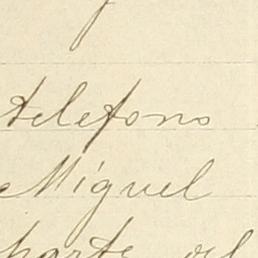 telefono
Miguel
parte del